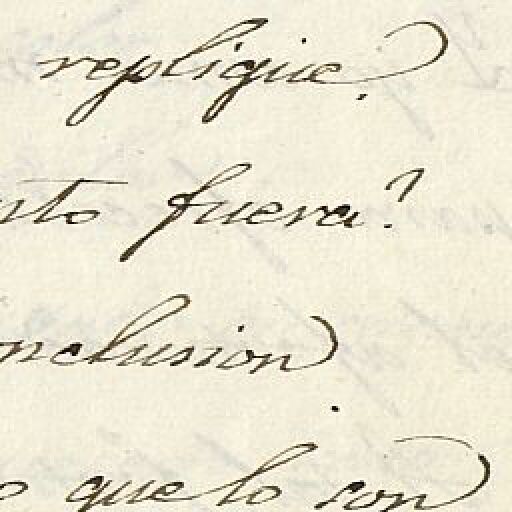 replique?
sto fuera?
nclusion.
o que lo son